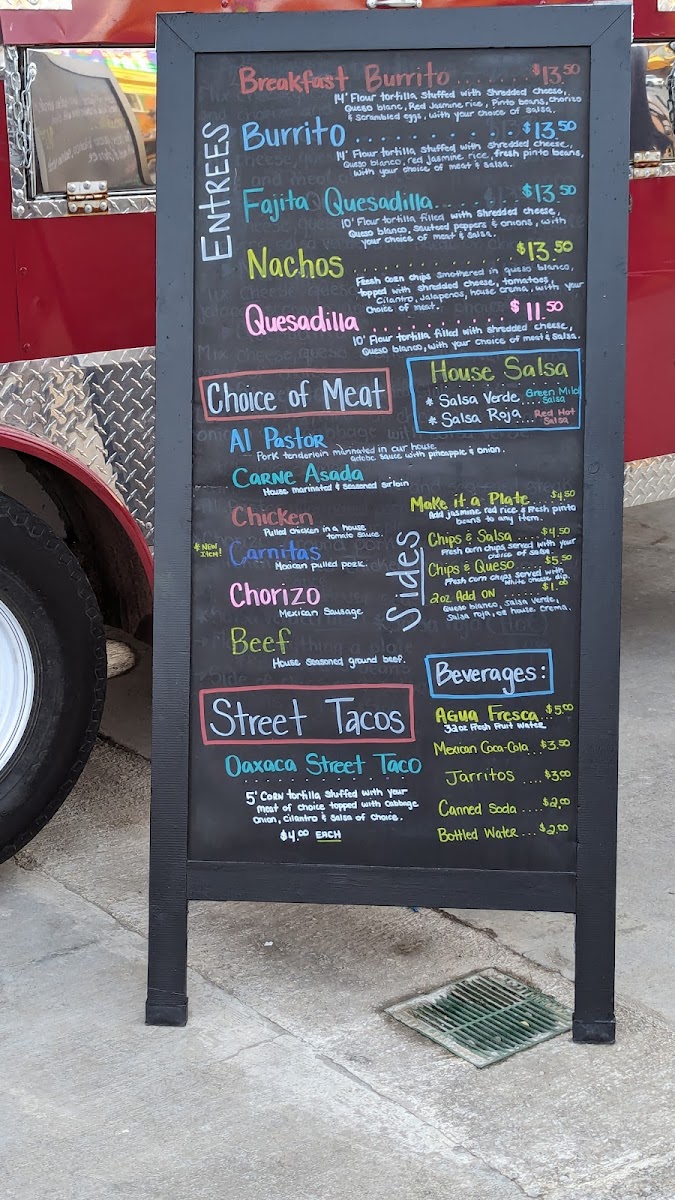 ENTREES
Breakfast Burrito ....... $13.50
14" Flour tortilla stuffed with shredded cheese,
Queso blanc, Red Jasmine rice, Pinto beans, chorizo
& Scrambled eggs, with your choice of salsa.
Burrito .......... $13.50
14" Flour tortilla stuffed with shredded cheese,
Queso blanco, red jasmine rice, fresh pinto beans,
with your choice of meat & salsa.
Fajita Quesadilla....... $13.50
10" Flour tortilla filled with shredded cheese,
Queso blanco, sauteed peppers & onions, with
your choice of meat & salsa.
Nachos ............ $13.50
Fresh corn chips smothered in queso blanco,
topped with shredded cheese, tomatoes,
Cilantro, Jalapenos, house crema, with your
choice of meat.
Quesadilla .......... $11.50
10" Flour tortilla filled with shredded cheese,
Queso blanco, with your choice of meat & salsa.
Choice of Meat
Al Pastor
Pork tenderloin marinated in our house
adobe sauce with pineapple & onion.
Carne Asada
House marinated & seasoned sirloin
Chicken
Pulled chicken in a house
tomato sauce.
* NEW ITEM! Carnitas
Mexican pulled pork.
Chorizo
Mexican Sausage
Beef
House seasoned ground beef.
Street Tacos
Oaxaca Street Taco
5" Corn tortilla stuffed with your
meat of choice topped with cabbage
onion, cilantro & salsa of choice.
$4.00 EACH
House Salsa
* Salsa Verde.... Green Mild Salsa
* Salsa Roja.... Red Hot Salsa
Sides
Make it a Plate ... $4.50
Add jasmine red rice & fresh pinto
beans to any item.
Chips & Salsa .... $4.50
Fresh corn chips served with your
choice of salsa.
Chips & Queso .... $5.50
Fresh corn chips served with
white cheese dip.
2oz Add ON ....... $1.00
Queso blanco, salsa verde,
Salsa roja, or house crema.
Beverages:
Agua Fresca..$5.00
32oz Fresh Fruit Water
Mexican Coca-Cola...$3.50
Jarritos ....$3.00
Canned Soda ...$2.00
Bottled Water ...$2.00